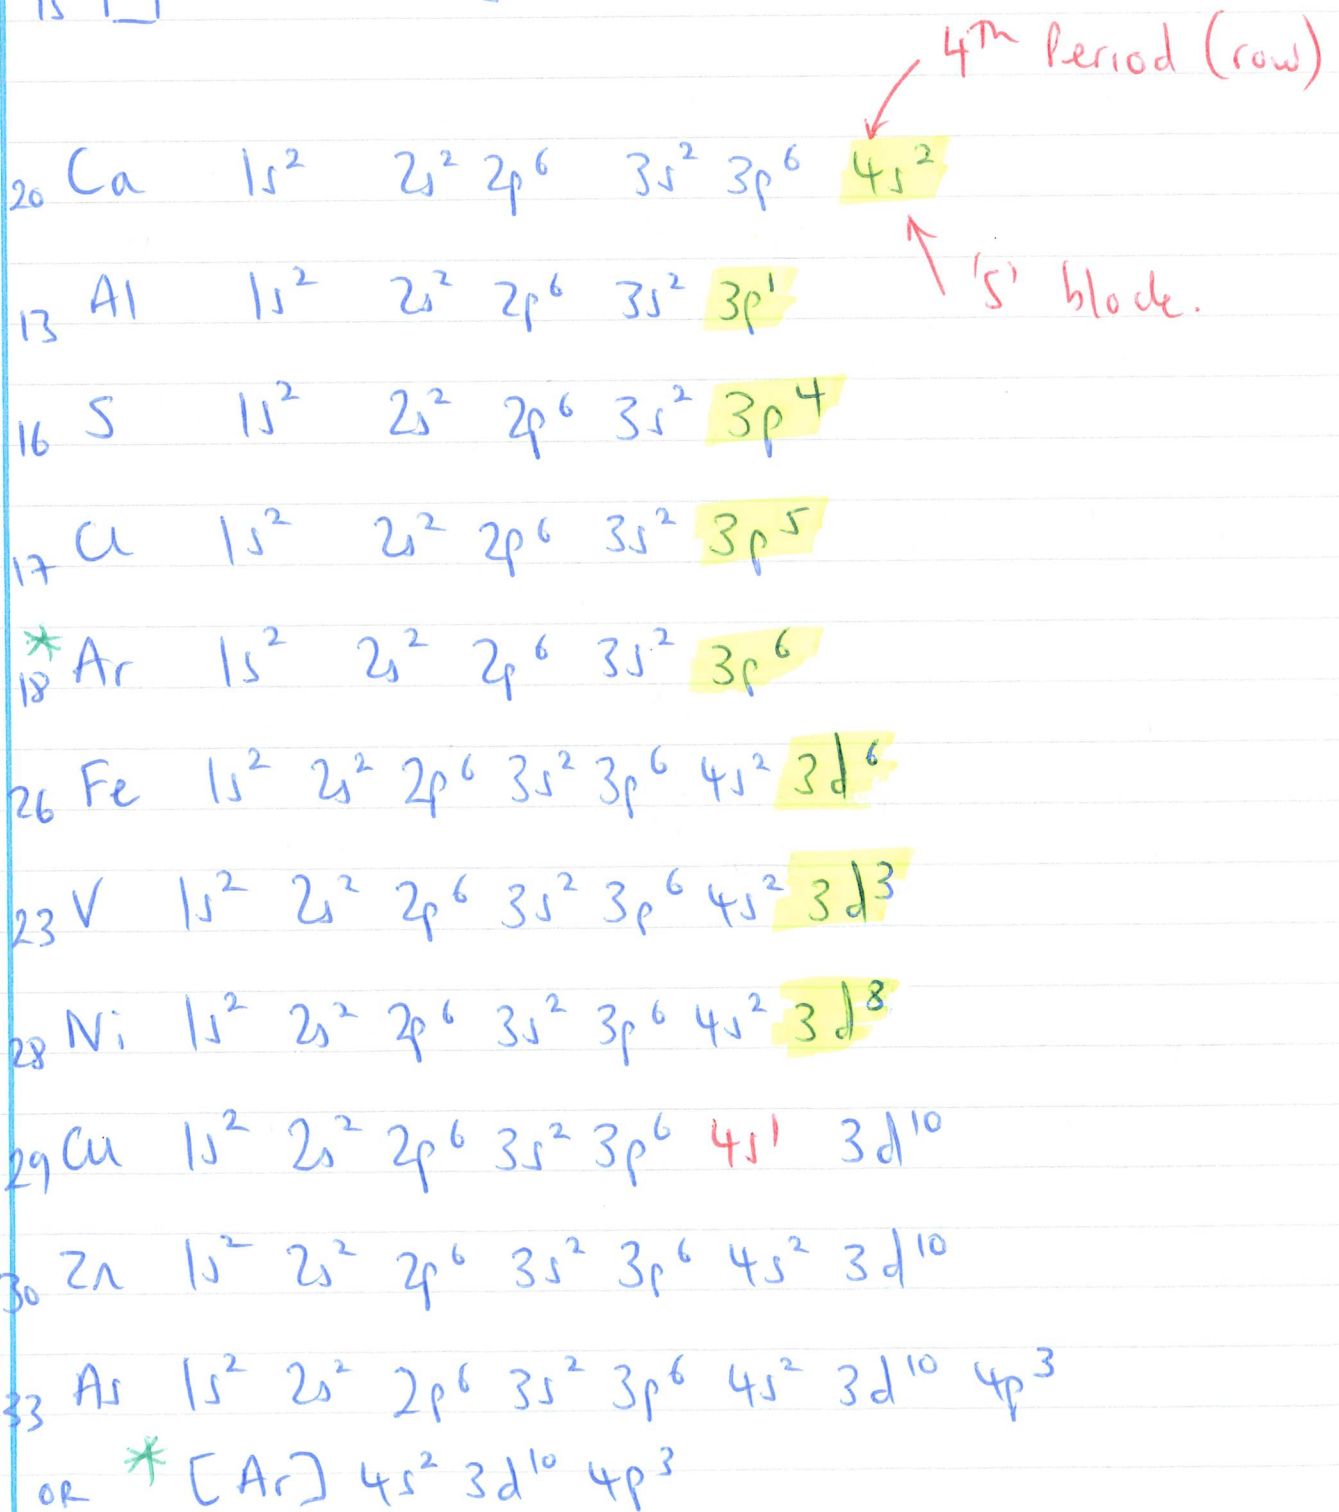 1s
4th Period (row)
20 Ca 1s² 2s² 2p⁶ 3s² 3p⁶ 4s²
13 Al 1s² 2s² 2p⁶ 3s² 3p¹
's' block.
16 S 1s² 2s² 2p⁶ 3s² 3p⁴
17 Cl 1s² 2s² 2p⁶ 3s² 3p⁵
* 18 Ar 1s² 2s² 2p⁶ 3s² 3p⁶
26 Fe 1s² 2s² 2p⁶ 3s² 3p⁶ 4s² 3d⁶
23 V 1s² 2s² 2p⁶ 3s² 3p⁶ 4s² 3d³
28 Ni 1s² 2s² 2p⁶ 3s² 3p⁶ 4s² 3d⁸
29 Cu 1s² 2s² 2p⁶ 3s² 3p⁶ 4s¹ 3d¹⁰
30 Zn 1s² 2s² 2p⁶ 3s² 3p⁶ 4s² 3d¹⁰
33 As 1s² 2s² 2p⁶ 3s² 3p⁶ 4s² 3d¹⁰ 4p³
OR * [Ar] 4s² 3d¹⁰ 4p³